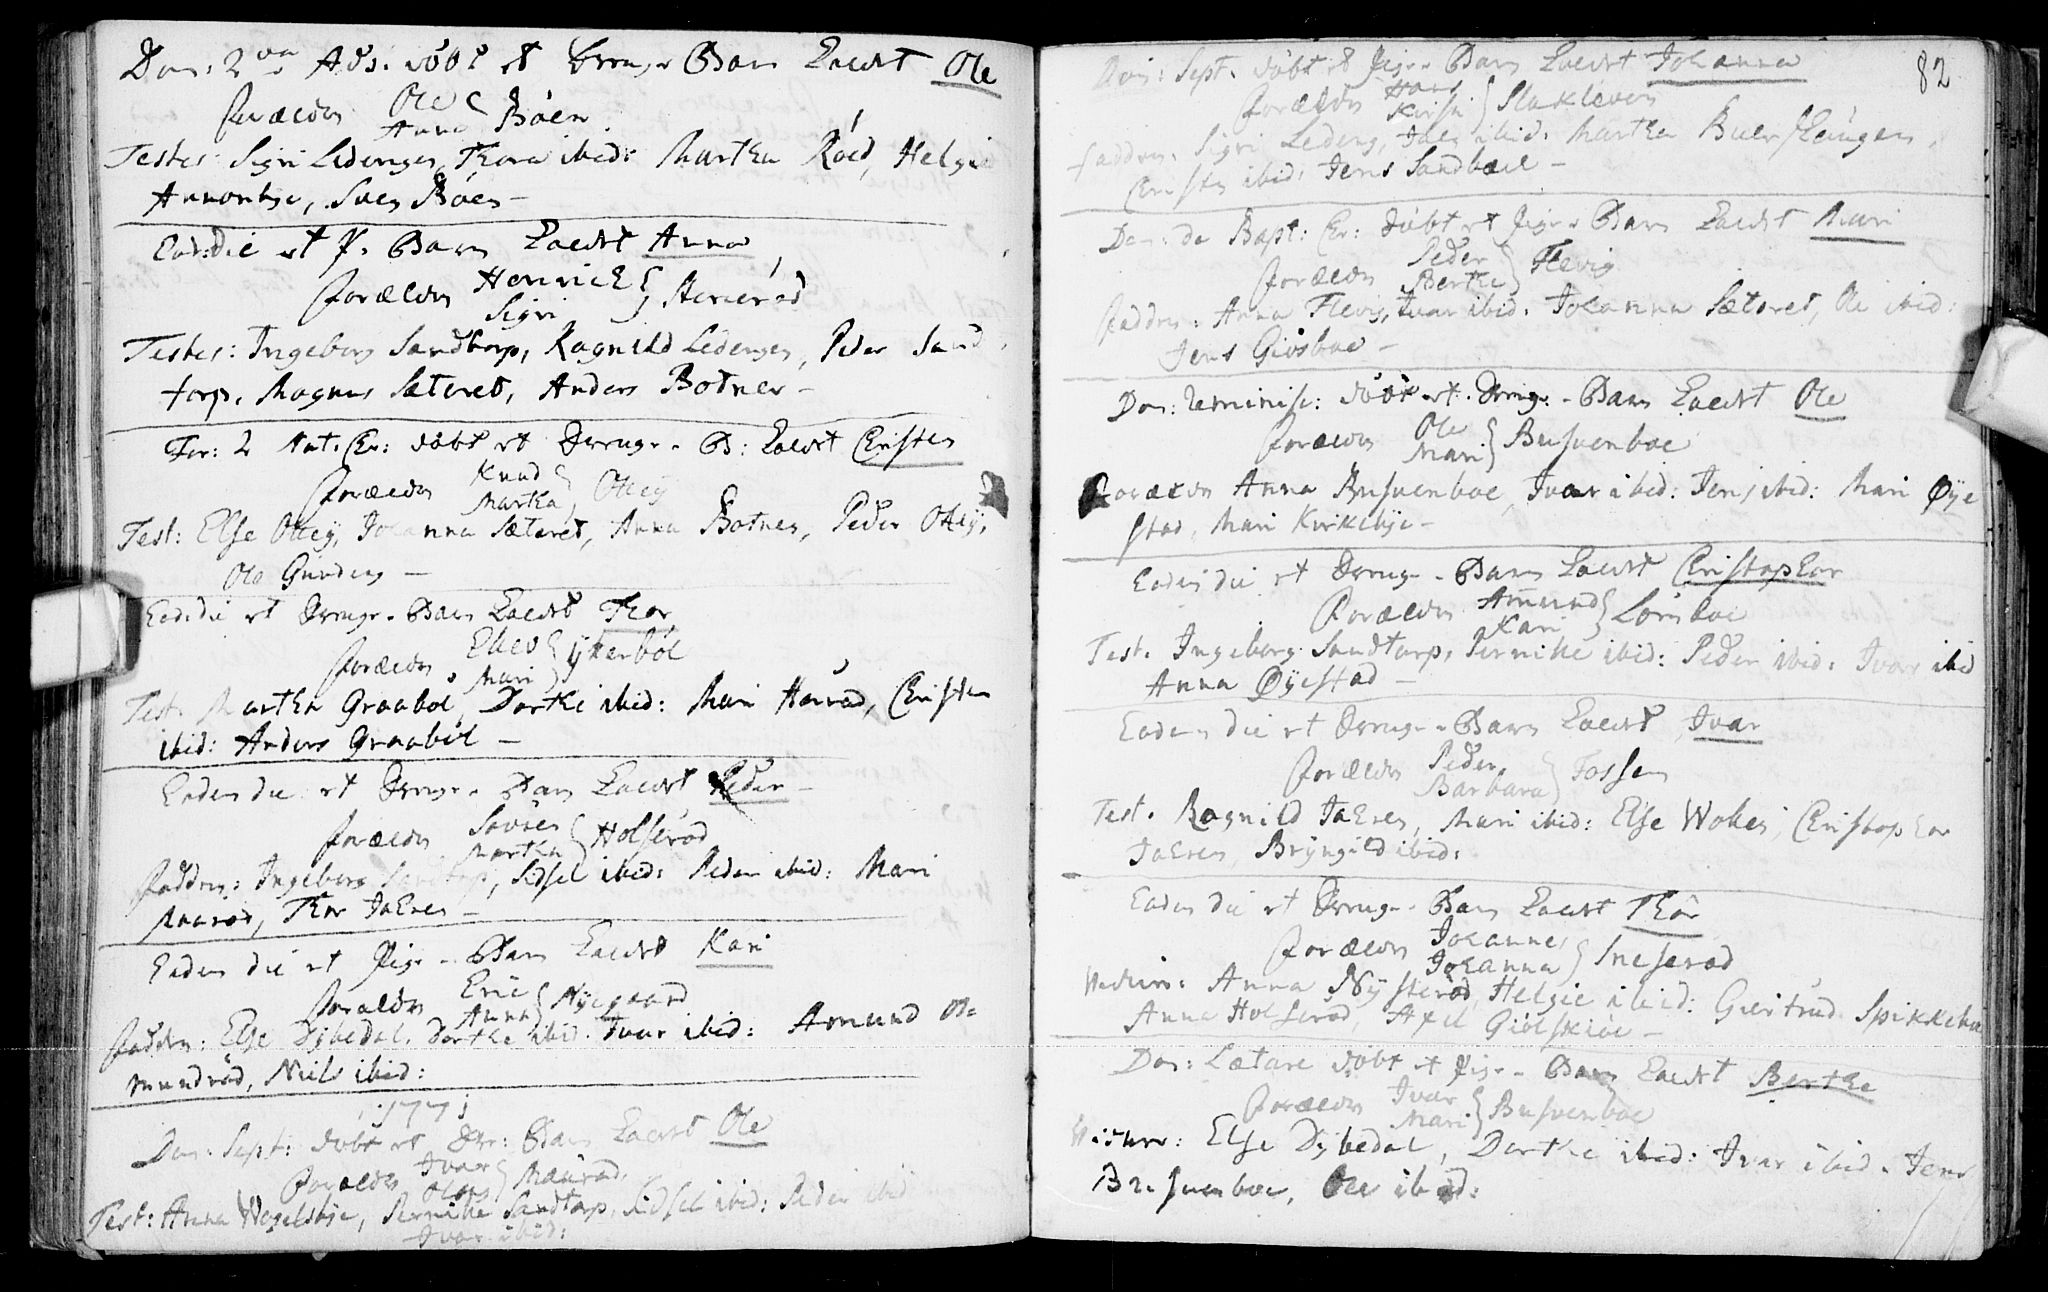 Dom: 2 Adv. döbt et Drenge Barn kaldet Ole
Forældre Ole Anne Böen
Testes: Sigri Ledengen, Thora ibid: Martha Röed, Helgie
Svend Böen –
Eod: die et P. Barn kaldet Anna
Forældre Henrich Sigri
Testes: Ingeborg Sandtorp, Ragnild Ledengen, Peder Sand
torp, Magnus Sæteret, Anders Botner –
Fer: 2 Nat. Chr: döbt et Drenge B: kaldet Christen
Forældre Knud Martha Ottey
Test: Else Ottey, Johanna Sæteret, Anna Botner, Peder Ottey,
Ole
Eod: die et Drenge Barn kaldet Thor
Forældre Mari
Test. Martha Graaböl, Dorthe ibid: Mari Christen
ibid: Anders Graaböl –
Eodem die et Drenge Barn kaldet Peder –
Forældre Sören Martha Holseröd
Faddre: Ingeborg Sandtorp, Sidsel ibid: Peder ibid: Mari
Thor Jahren –
Eodem die et Pige Barn kaldet Kari
Forældre Eric Anna Nyegaard
Faddre: Else Dybedal, Dorthe ibid. Ivar ibid: Amund A
mundröd, Niels ibid:
1771
Dom: Sept: döbt et Dr: Barn kaldet Ole
Forældre Ivar
Test: Anna Pernihe Sandtorp, Sidsel ibid: Peder ibid
Ivar ibid:
82
Dom: Sept. döbt et Pige Barn kaldet Johanna
Forældre Hans Kirsti Slakleven
Faddre: Sigri Ledeng, ibid: Martha
Christen ibid, Jens Sandbæk –
Dom: döbt et Pige Barn kaldet Mari
Forældre Peder Berthe Flevig
Faddre: Anna Flevig, Ivar ibid. Johanna Sæteret, Ole ibid:
Jens –
Dom: Reminisc: döbt et Drenge Barn kaldet Ole
Forældre Ole Mari Busuenboe
Forældre Anna Busuenboe, Ivar ibid: Jens ibid: Mari Øye
stad, Mari Kirkebye –
Eodem die et Drenge Barn kaldet Christopher
Forældre Amund Kari
Test. Ingeborg Sandtorp, Pernihe ibid: Peder ibid: Ivar ibid
Anna Øyestad –
Eodem die et Drenge Barn kaldet Ivar
Forældre Peder Barbara Fossen
Test. Ragnild Jahren, Mari ibid: Else Christopher
Jahren, Bryngild ibid:
Eodem die et Drenge Barn kaldet Thor
Forældre Johannes Johanna Sneseröd
Anna Nysteröd, Helgie ibid: Giertrud
Anna Holseröd, Axel
Dom: Lætare döbt et Pige Barn kaldet Berthe
Forældre Ivar Mari Busuenboe
Else Dybedal, Dorthe ibid: Ivar ibid. Jens
Busuenboe, Ole ibid: